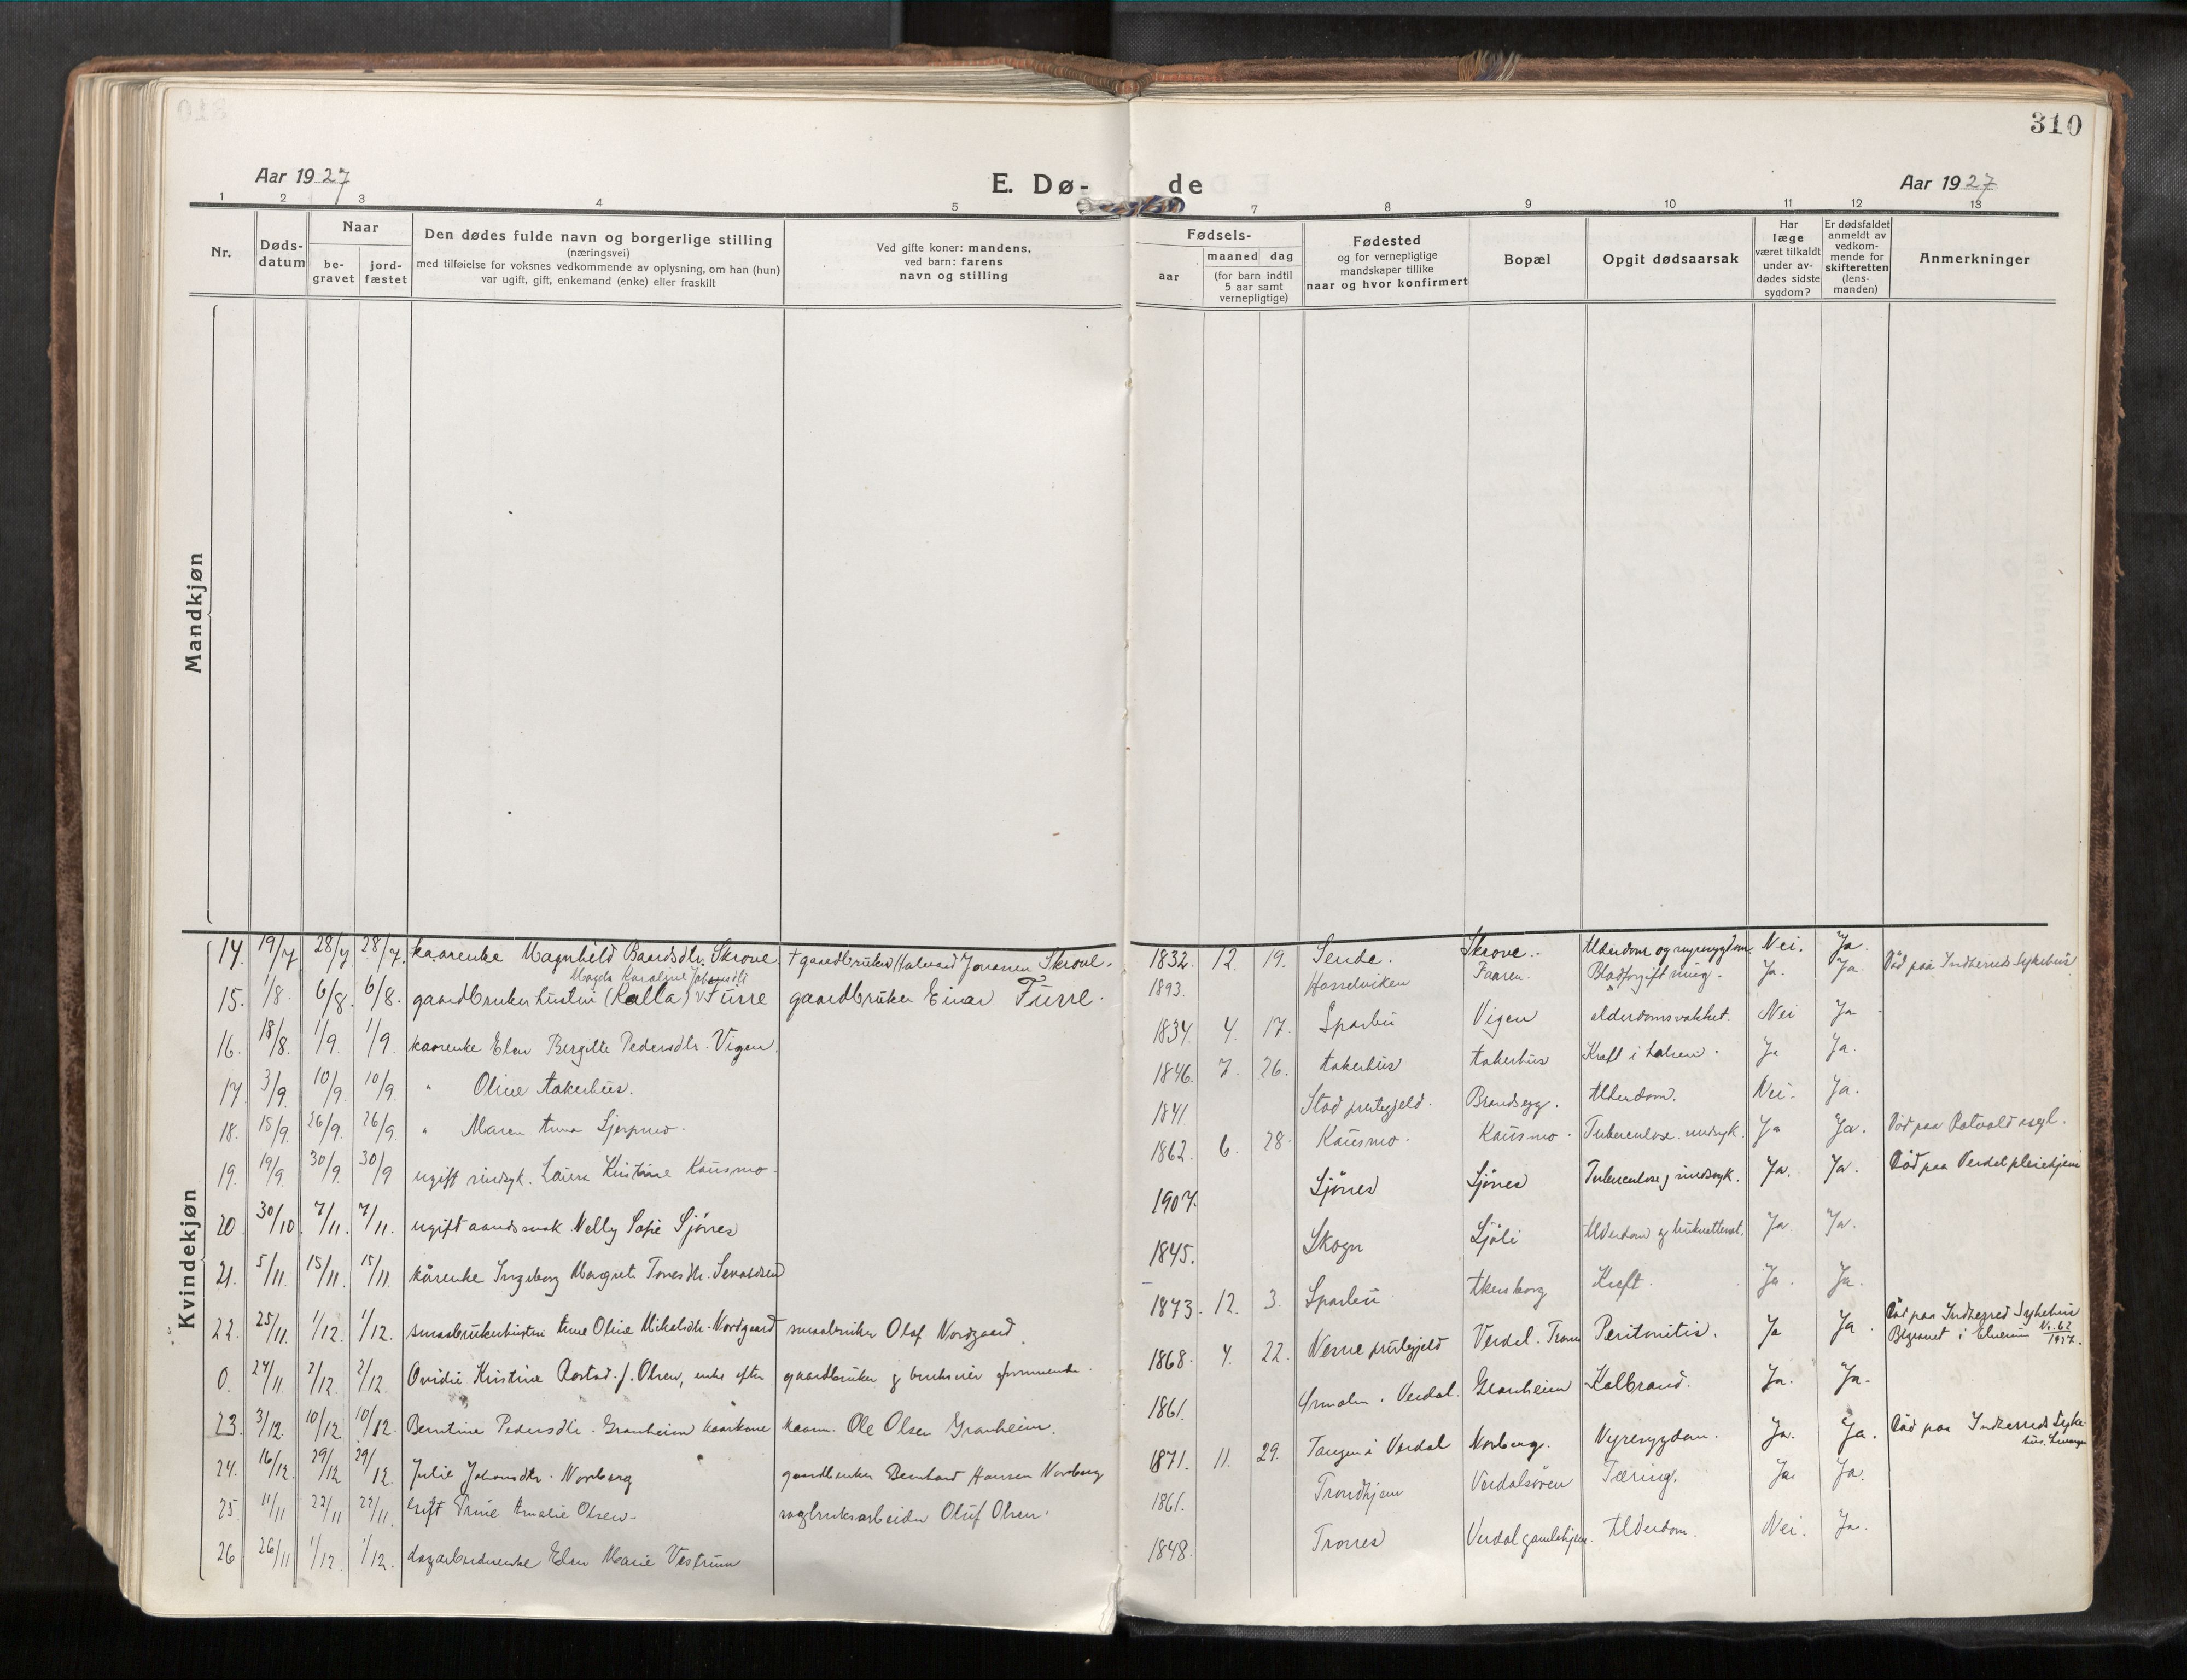 310
Aar 1927
E. Dø-
de
Aar 1927
1 2 3 4 5 7 8 9 10 11 12 13
Nr.
Døds-
datum
Naar
be-
gravet
jord-
fæstet
Den dødes fulde navn og borgerlige stilling
(næringsvei)
med tilføielse for voksnes vedkommende av oplysning, om han (hun)
var ugift, gift, enkemand (enke) eller fraskilt
Ved gifte koner: mandens,
ved barn: farens
navn og stilling
Fødsels-
aar
maaned dag
(for barn indtil
5 aar samt
vernepligtige)
Fødested
og for vernepligtige
mandskaper tillike
naar og hvor konfirmert
Bopæl
Opgit dødsaarsak
Har
læge
været tilkaldt
under av-
dødes sidste
sygdom?
Er dødsfaldet
anmeldt av
vedkom-
mende for
skifteretten
(lens-
manden)
Anmerkninger
Mandkjøn
Kvindekjøn
14. 19/7 28/7 28/7. kaarenke Magnhild Baardsdtr. Skrove. † gaardbruker Halvard Jonassen Skrove. 1832. 12. 19. Sende. Skrove. Alderdom og nyresygdom. Nei. Ja.
Magda Karoline Johansdtr
15. 1/8 6/8. 6/8. gaardbrukerhustru (Kalla) Furre gaardbruker Einar Furre. 1893. Hasselviken Faaren. Blodforgiftning. Ja. Ja. Död paa Indherreds Sykehus
16. 18/8. 1/9. 1/9. kaarenke Elen Bergitte Pedersdtr. Vigen. 1834. 4. 17. Sparbu Vigen alderdomsvakhet. Nei Ja
17. 3/9. 10/9. 10/9. " Oline Aakerhus. 1846. 7. 26. Aakerhus Aakerhus Kræft i halsen. Ja Ja.
18. 15/9. 26/9. 26/9. " Maren Anna 1841. Stod prestegjeld. Brandsegg. Alderdom. Nei. Ja.
19. 19/9. 30/9. 30/9 ugift sindsyk. Laura Kristine Kausmo. 1862. 6. 28. Kausmo. Kausmo. Tuberculose. sindsyk. Ja Ja. Död paa Rotvold asyl.
20 30/10. 7/11. 7/11. ugift aandssvak Nelly Sofie Sjönes 1907. Sjönes Sjönes Tuberculose, sindssyk. Ja. Ja. Död paa Verdal pleiehjem
21. 5/11. 15/11. 15/11. kårenke Ingeborg Margrete Sevaldsen 1845. Skogn Alderdom og Ja. Ja.
22. 25/11. 1/12. 1/12. smaabrukerhustru Anne Oline Mikalsdtr. Nordgaard smaabruker Olaf Nordgaard 1873. 12. 3. Sparbu Kreft. Ja. Ja.
0. 24/11 2/12. 2/12. Ovidie Kristine Rostad. f. Olsen, enke efter gaardbruker og brukseier 1868. 4. 22. Nesne prestegjeld Verdal. Trones Peritonitis. Ja Ja. Död paa Indherred Sykehus
Begravet i Elverum Nr. 62
1927.
23. 3/12. 10/12. 10/12. Berntine Pedersdtr. Granheim kaarkone kaarm. Ole Olsen Granheim. 1861. Ørmelen i Verdal. Granheim Kolbrand. Ja. Ja.
24. 16/12. 29/12 29/12. Julie Johansdtr. Norberg gaardbruker Bernhard Hansen Norberg 1871. 11. 29. Tangen i Verdal Norberg. Nyresygdom. Ja. Ja. Död paa Indherreds Syke-
hus, Levanger
25. 11/11 22/11 22/11. Gift Trine Amalie Olsen. sagbruksarbeider Oluf Olsen. 1861. Trondhjem Verdalsören Tæring. Ja. Ja.
26 26/11 1/12. 1/12. dagarbeiderenke Elen Marie Vestrum 1848. Trones Verdal gamlehjem. Alderdom. Nei. Ja.